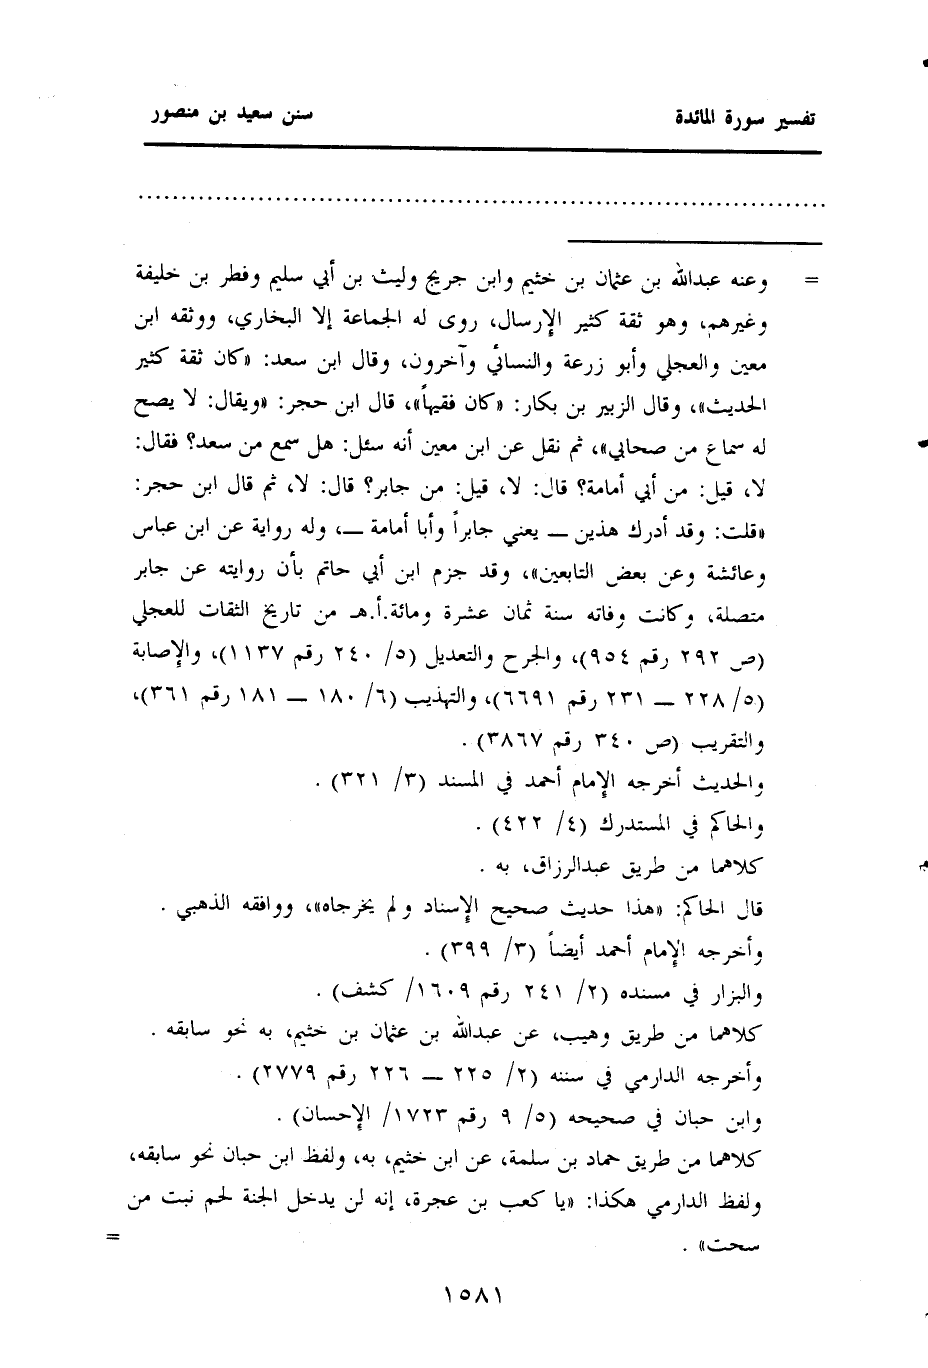 تفسير سورة المائدة
سنن سعيد بن منصور
= وعنه عبدالله بن عثمان بن خثيم وابن جريج وليث بن أبي سليم وفطر بن خليفة
وغيرهم، وهو ثقة كثير الإرسال، روى له الجماعة إلا البخاري، ووثقه ابن
معين والعجلي وأبو زرعة والنسائي وآخرون، وقال ابن سعد: «كان ثقة كثير
الحديث»، وقال الزبير بن بكار: «كان فقيهاً»، قال ابن حجر: «ويقال: لا يصح
له سماع من صحابي»، ثم نقل عن ابن معين أنه سئل: هل سمع من سعد؟ فقال:
لا، قيل: من أبي أمامة؟ قال: لا، قيل: من جابر؟ قال: لا، ثم قال ابن حجر:
«قلت: وقد أدرك هذين ــ يعني جابراً وأبا أمامة ــ، وله رواية عن ابن عباس
وعائشة وعن بعض التابعين»، وقد جزم ابن أبي حاتم بأن روايته عن جابر
متصلة، وكانت وفاته سنة ثمان عشرة ومائة.أ.هـ من تاريخ الثقات للعجلي
(ص ٢٩٢ رقم ٩٥٤)، والجرح والتعديل (٥/ ٢٤٠ رقم ١١٣٧)، والإصابة
(٥/ ٢٢٨ ــ ٢٣١ رقم ٦٦٩١)، والتهذيب (٦/ ١٨٠ ــ ١٨١ رقم ٣٦١)،
والتقريب (ص ٣٤٠ رقم ٣٨٦٧) .
والحديث أخرجه الإمام أحمد في المسند (٣/ ٣٢١) .
والحاكم في المستدرك (٤/ ٤٢٢) .
كلاهما من طريق عبدالرزاق، به .
قال الحاكم: «هذا حديث صحيح الإسناد ولم يخرجاه»، ووافقه الذهبي .
وأخرجه الإمام أحمد أيضاً (٣/ ٣٩٩) .
والبزار في مسنده (٢/ ٢٤١ رقم ١٦٠٩/ كشف) .
كلاهما من طريق وهيب، عن عبدالله بن عثمان بن خثيم، به نحو سابقه .
وأخرجه الدارمي في سننه (٢/ ٢٢٥ ــ ٢٢٦ رقم ٢٧٧٩) .
وابن حبان في صحيحه (٥/ ٩ رقم ١٧٢٣/ الإحسان) .
كلاهما من طريق حماد بن سلمة، عن ابن خثيم، به، ولفظ ابن حبان نحو سابقه،
ولفظ الدارمي هكذا: «يا كعب بن عجرة، إنه لن يدخل الجنة لحم نبت من
سحت» . =
١٥٨١